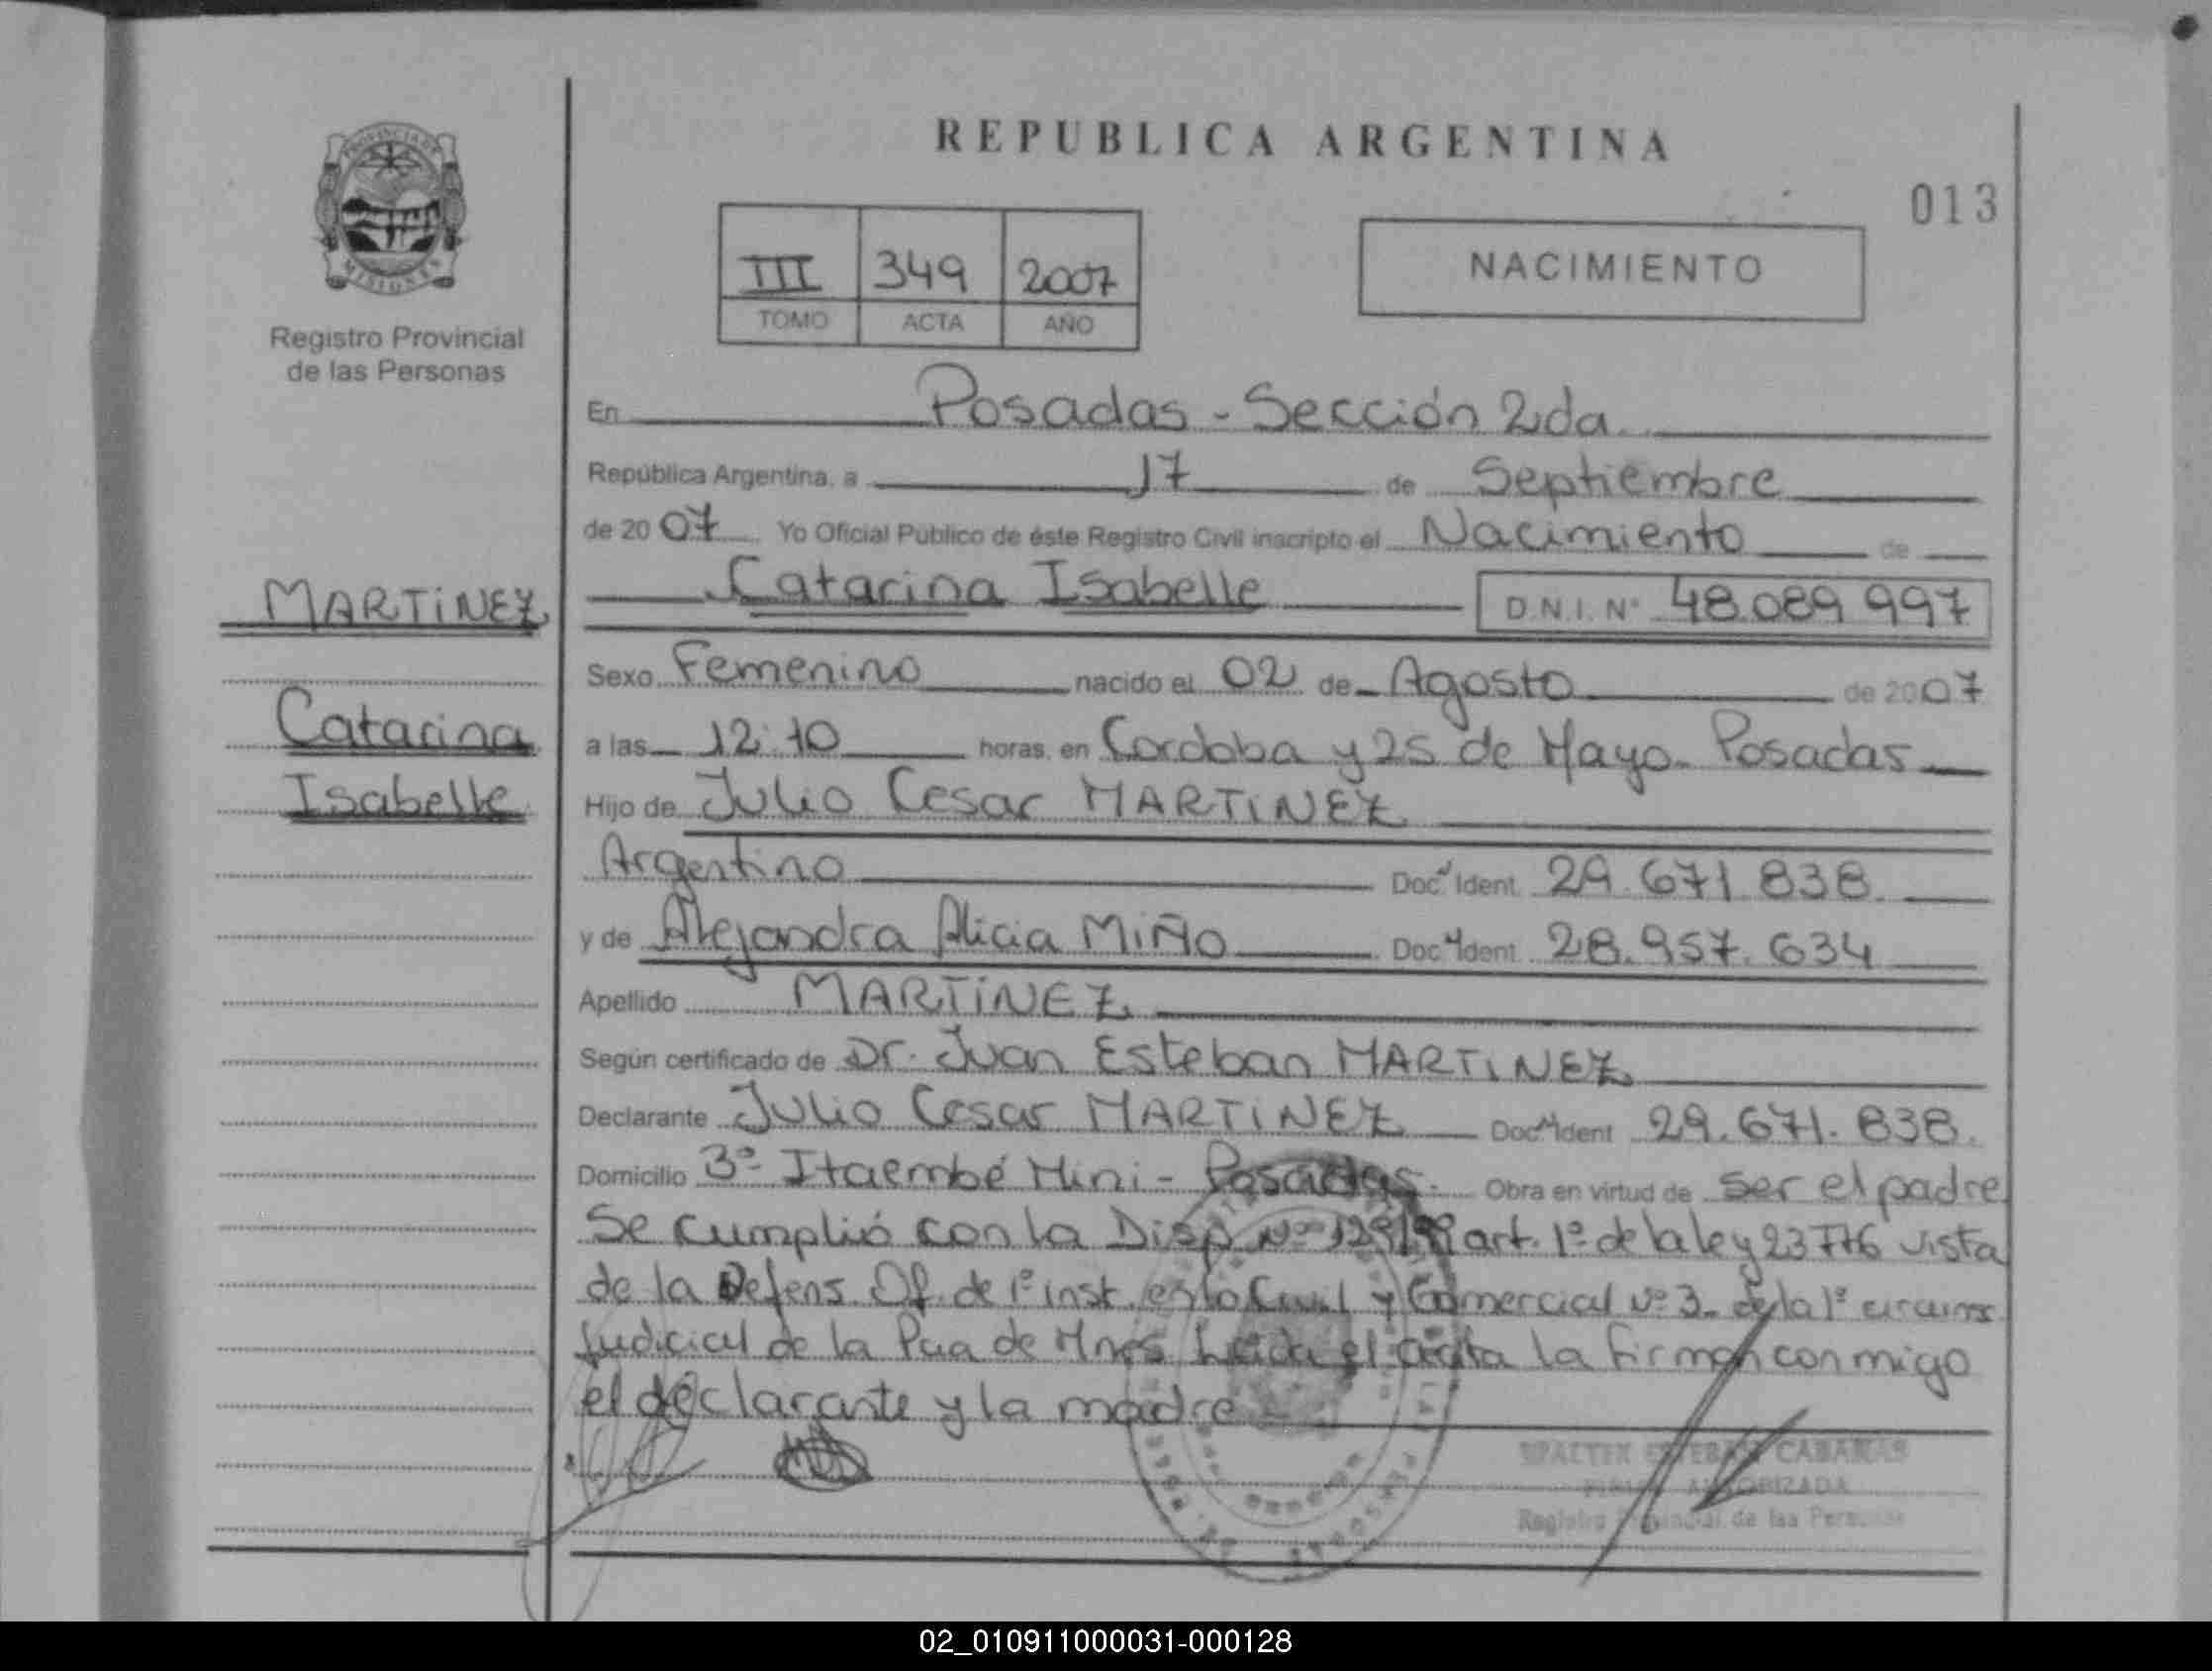 PROVINCIA DE
MISIONES
Registro Provincial
de las Personas
MARTINEZ
Catarina
Isabelle
REPUBLICA ARGENTINA
013
III 349 2007
TOMO ACTA AÑO
NACIMIENTO
En Posadas - Sección 2da.
República Argentina, a 17 de Septiembre
de 2007 Yo Oficial Público de éste Registro Civil inscripto el Nacimiento de
Catarina Isabelle D.N.I. N° 48.089 997
Sexo Femenino nacido el 02 de Agosto de 2007
a las 12:10 horas, en Cordoba y 25 de Mayo. Posadas
Hijo de Julio Cesar MARTINEZ
Argentino Doc. Ident. 29.671 838.
y de Alejandra Alicia MIÑO Doc. Ident. 28.957.634
Apellido MARTINEZ
Según certificado de Dr. Juan Esteban MARTINEZ
Declarante Julio Cesar MARTINEZ Doc. Ident 29.671.838.
Domicilio 3º Itaembé Mini - Posadas. Obra en virtud de ser el padre
Se cumplió con la Disp Nº art. 1º de la ley 23776 vista
de la Defens. Of. de 1º inst. en lo Civil y Comercial Nº 3 - de la 1º circuns
Judicial de la Pcia de Mnes Leida el acta la firman conmigo
el declarante y la madre
ESTEBAN CABAÑAS
FIRMA AUTORIZADA
Registro Provincial de las Personas
02_010911000031-000128